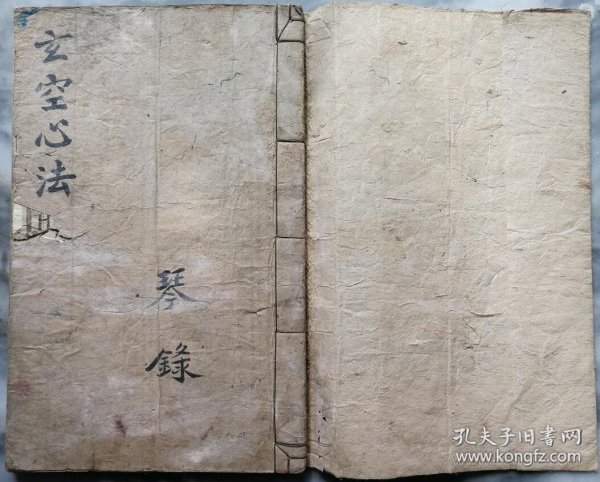 玄空心法
琴錄
孔夫子旧书网
www.kongfz.com